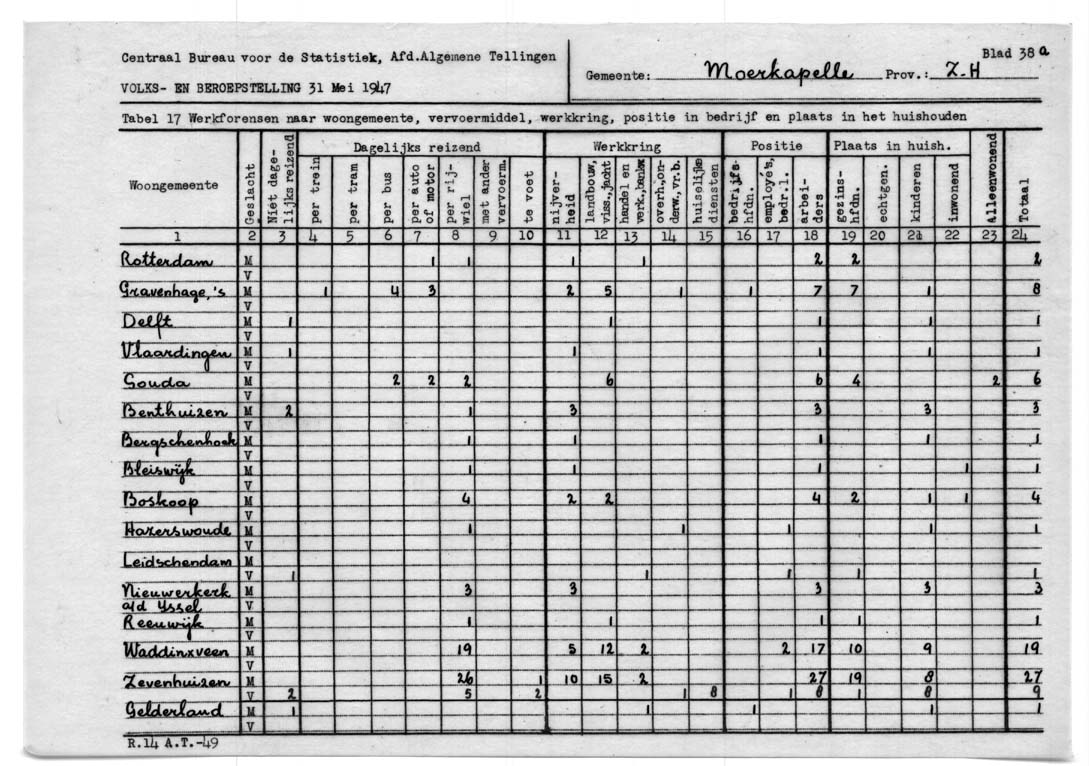 Centraal Bureau voor de Statistiek, Afd.Algemene Tellingen
VOLKS- EN BEROEPSTELLING 31 Mei 1947
Gemeente: Moerkapelle Prov.: Z-H
Blad 38 a
Tabel 17 Werkforensen naar woongemeente, vervoermiddel, werkkring, positie in bedrijf en plaats in het huishouden
Woongemeente Geslacht Niet dage-lijks reizend Dagelijks reizend Werkkring Positie Plaats in huish. Alleenwonend Totaal
per trein per tram per bus per auto of motor per rij-wiel met ander vervoerm. te voet nijver-heid landbouw, viss.,jacht handel en verk.,bankw overh.,on-derw.,vr.b. huiselijke diensten bedrijfs-hfdn. employé's, bedr.l. arbei-ders gezins-hfdn. echtgen. kinderen inwonend
1 2 3 4 5 6 7 8 9 10 11 12 13 14 15 16 17 18 19 20 21 22 23 24
Rotterdam M 1 1 1 1 2 2 2
V
Gravenhage,'s M 1 4 3 2 5 1 1 7 7 1 8
V
Delft M 1 1 1 1 1
V
Vlaardingen M 1 1 1 1 1
V
Gouda M 2 2 2 6 6 4 2 6
V
Benthuizen M 2 1 3 3 3 3
V
Bergschenhoek M 1 1 1 1 1
V
Bleiswijk M 1 1 1 1 1
V
Boskoop M 4 2 2 4 2 1 1 4
V
Hazerswoude M 1 1 1 1 1
V
Leidschendam M
V 1 1 1 1 1
Nieuwerkerk M 3 3 3 3 3
a/d Yssel V
Reeuwijk M 1 1 1 1 1
V
Waddinxveen M 19 5 12 2 2 17 10 9 19
V
Zevenhuizen M 26 1 10 15 2 27 19 8 27
V 2 5 2 1 8 1 8 1 8 9
Gelderland M 1 1 1 1 1
V
R.14 A.T.-49